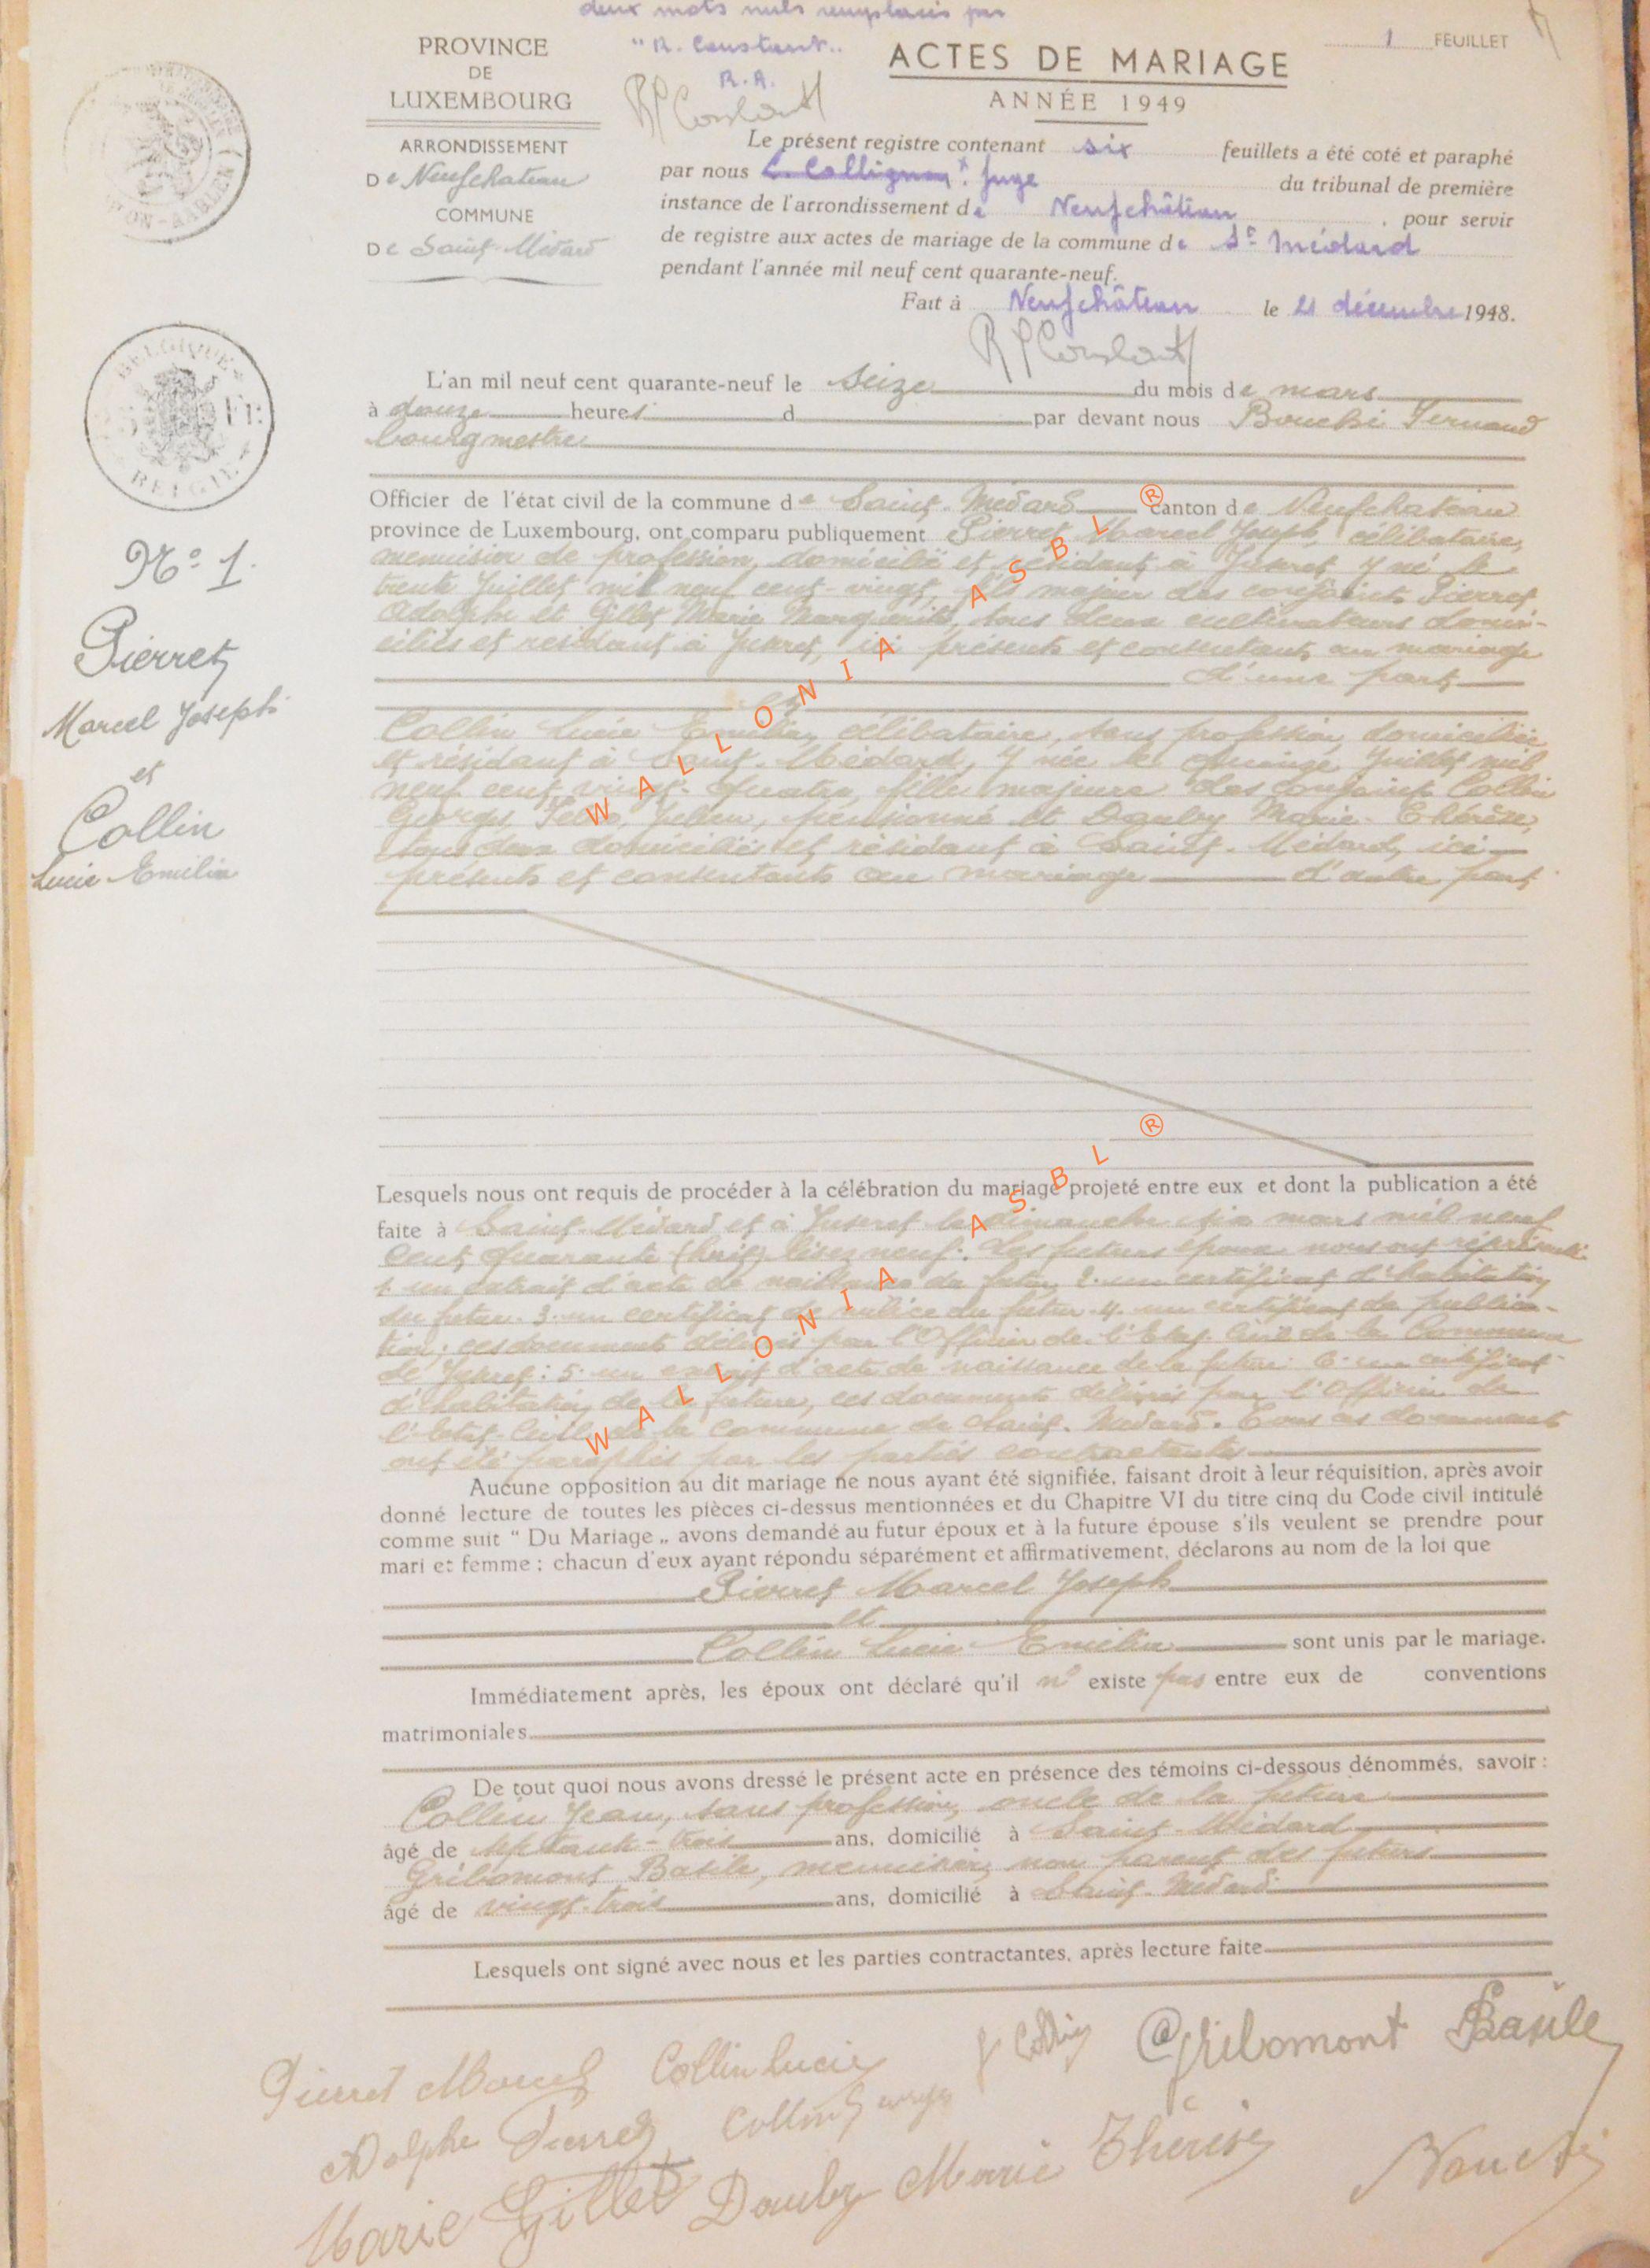 deux mots nuls remplacés par
"R. Constant"
R.A.
PROVINCE
DE
LUXEMBOURG
ARRONDISSEMENT
De Neufchateau
COMMUNE
De Saint-Médard
1 FEUILLET
ACTES DE MARIAGE
ANNÉE 1949
Le présent registre contenant six feuillets a été coté et paraphé
par nous C. Collignon juge du tribunal de première
instance de l'arrondissement de Neufchâteau, pour servir
de registre aux actes de mariage de la commune de St Médard
pendant l'année mil neuf cent quarante-neuf.
Fait à Neufchâteau le 21 décembre 1948.
BELGIQUE
Fr.
BELGIE
L'an mil neuf cent quarante-neuf le Seize du mois de mars
à douze heures d par devant nous Bouché Fernand
bourgmestre
Officier de l'état civil de la commune de Saint-Médard canton de Neufchateau
province de Luxembourg, ont comparu publiquement Pierret Marcel Joseph, célibataire,
menuisier de profession, domicilié et résidant à Juseret y né le
trente Juillet mil neuf cent-vingt, fils majeur des conjoints Pierret
Adolphe et Gillet Marie Marguerite, tous deux cultivateurs domi-
ciliés et résidant à Juseret, ici présents et consentants au mariage
d'une part
et
Collin Lucie Emilia, célibataire, sans profession, domiciliée
et résidant à Saint-Médard, y née le quinze Juillet mil
neuf cent vingt-quatre, fille majeure des conjoints Collin
Georges, Julien, pensionné et Dauby Marie-Thérèse,
tous deux domiciliés et résidant à Saint-Médard, ici
présents et consentants au mariage d'autre part
N° 1.
Pierret
Marcel Joseph
et
Collin
Lucie Emilia
Lesquels nous ont requis de procéder à la célébration du mariage projeté entre eux et dont la publication a été
faite à Saint-Médard et à Juseret le dimanche six mars mil neuf
cent quarante (huit) lisez neuf. Les futurs époux nous ont
1. un extrait d'acte de naissance du futur, 2. un certificat d'habitation
du futur. 3. un certificat de milice du futur. 4. un certificat de publica-
tion; ces documents délivrés par l'Officier de l'Etat Civil de la Commune
de Juseret: 5. un extrait d'acte de naissance de la future. 6. un certificat
d'habitation de la future, ces documents délivrés par l'Officier de
l'Etat-Civil de la Commune de Saint-Médard. Tous ces documents
ont été paraphés par les parties contractantes
Aucune opposition au dit mariage ne nous ayant été signifiée, faisant droit à leur réquisition, après avoir
donné lecture de toutes les pièces ci-dessus mentionnées et du Chapitre VI du titre cinq du Code civil intitulé
comme suit " Du Mariage „ avons demandé au futur époux et à la future épouse s'ils veulent se prendre pour
mari et femme ; chacun d'eux ayant répondu séparément et affirmativement, déclarons au nom de la loi que
Pierret Marcel Joseph
et
Collin Lucie Emilia sont unis par le mariage.
Immédiatement après, les époux ont déclaré qu'il n' existe pas entre eux de conventions
matrimoniales
De tout quoi nous avons dressé le présent acte en présence des témoins ci-dessous dénommés, savoir :
Collin Jean, sans profession, oncle de la future
âgé de septante-trois ans, domicilié à Saint-Médard
Gribomont Basile, menuisier, non parent des futurs
âgé de vingt-trois ans, domicilié à Saint-Médard
Lesquels ont signé avec nous et les parties contractantes, après lecture faite
Pierret Marcel Collin Lucie J Collin Gribomont Basile
Adolphe Pierret Collin Georges
Marie Gillet Dauby Marie Thérèse Bouché
WALLONIA ASBL ®
WALLONIA ASBL ®